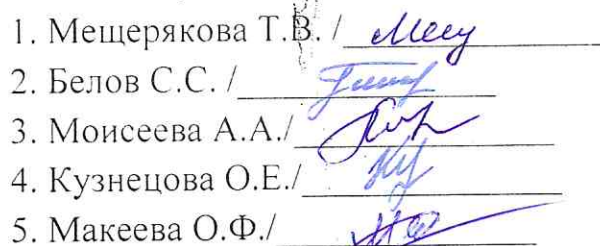 1. Мещерякова Т.В. /
2. Белов С.С. /
3. Моисеева А.А./
4. Кузнецова О.Е./
5. Макеева О.Ф./